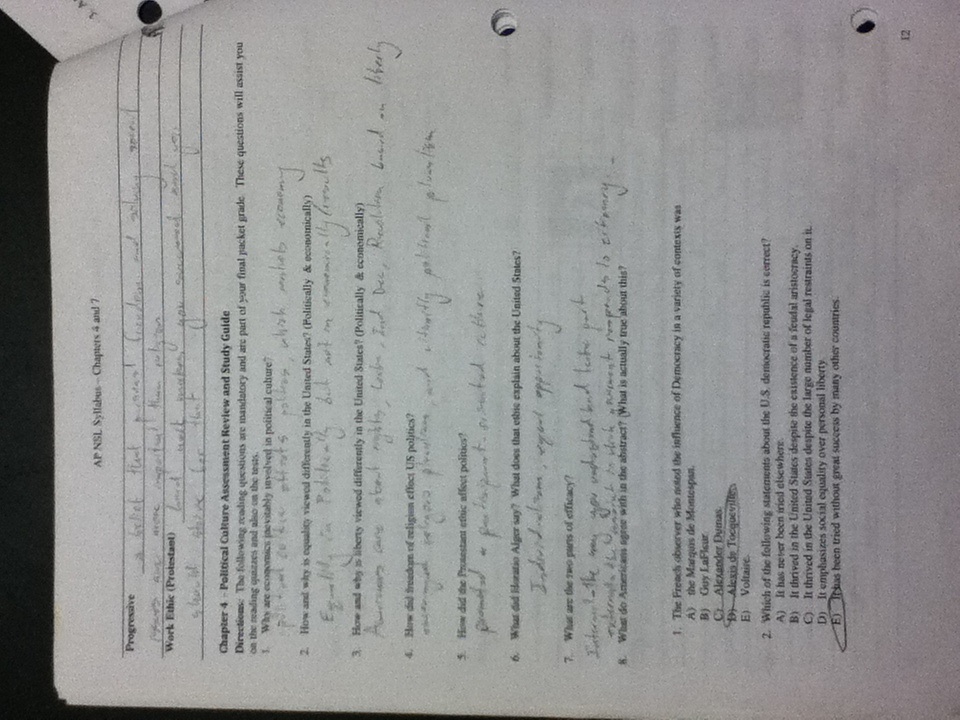 AP NSL Syllabus – Chapters 4 and 7
Progressive a belief that personal freedom and solving social
issues are more important than religion
Work Ethic (Protestant) hard work makes you succeed and you
should strive for that
Chapter 4 – Political Culture Assessment Review and Study Guide
Directions: The following reading questions are mandatory and are part of your final packet grade. These questions will assist you
on the reading quizzes and also on the tests.
1. Why are economics inevitably involved in political culture?
political culture affects politics, which economy
2. How and why is equality viewed differently in the United States? (Politically & economically)
Equality in Politically but not in economically/results
3. How and why is liberty viewed differently in the United States? (Politically & economically)
Americans care about rights, Locke, Ind Dec, Revolution based on liberty
4. How did freedom of religion effect US politics?
encouraged religious pluralism, and political pluralism
5. How did the Protestant ethic affect politics?
promoted a participant-oriented culture
6. What did Horatio Alger say? What does that ethic explain about the United States?
Individualism, equal opportunity
7. What are the two parts of efficacy?
Internal - the way you understand and take part
external - the in which government responds to citizenry.
8. What do Americans agree with in the abstract? (What is actually true about this?
1. The French observer who noted the influence of Democracy in a variety of contexts was
A) the Marquis de Montespan.
B) Guy LaFleur
C) Alexander Dumas.
D) Alexis de Tocqueville.
E) Voltaire.
2. Which of the following statements about the U.S. democratic republic is correct?
A) It has never been tried elsewhere.
B) It thrived in the United States despite the existence of a feudal aristocracy.
C) It thrived in the United States despite the large number of legal restraints on it.
D) It emphasizes social equality over personal liberty.
E) It has been tried without great success by many other countries.
12